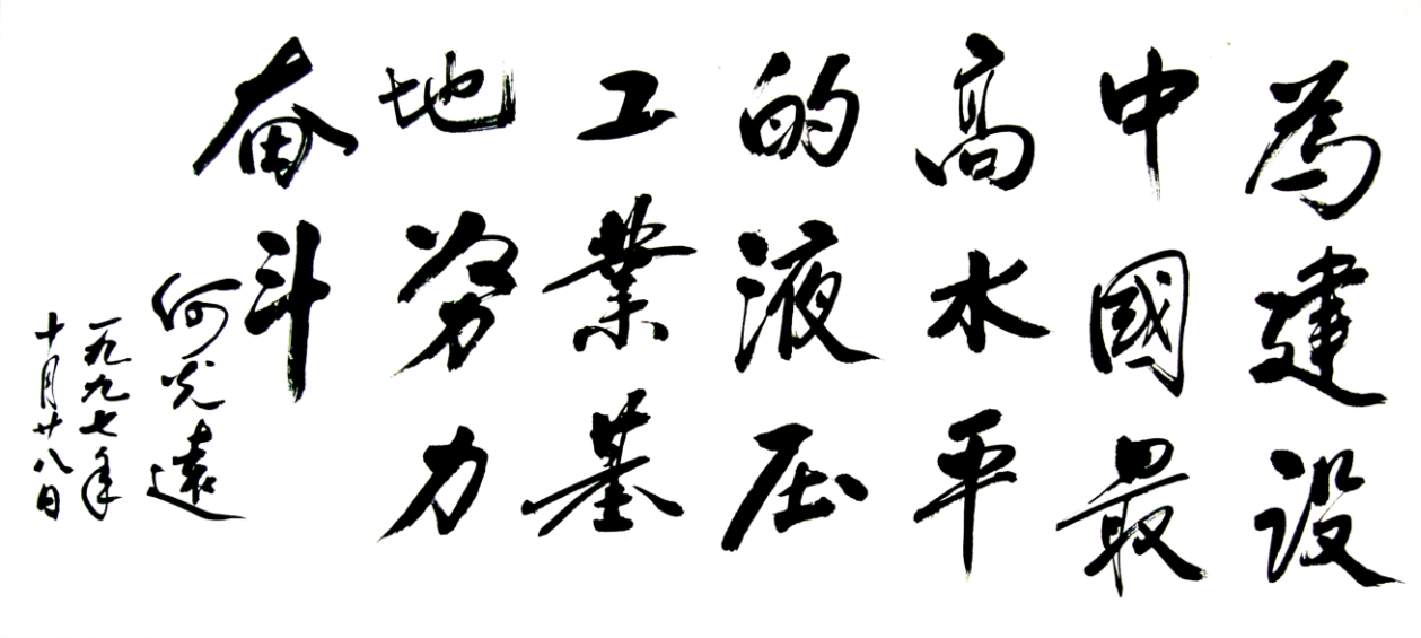 為建设
中國最
髙水平
的液压
工業基
地努力
奋斗
何光遠
一九九七年
十月廿八日